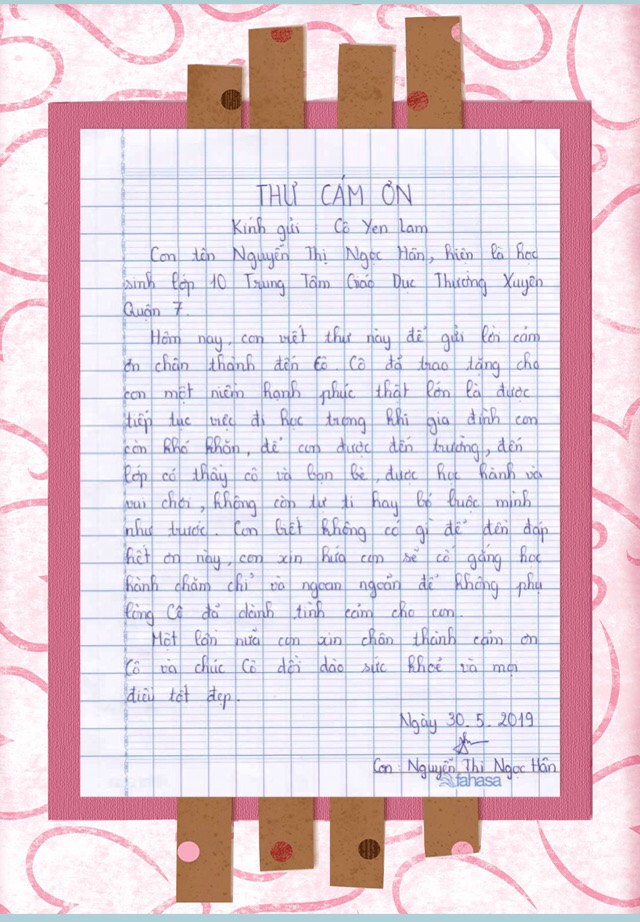 THƯ CẢM ƠN
Kính gửi : Cô Yen Lam
Con tên Nguyễn Thị Ngọc Hân, hiện là học
sinh lớp 10 Trung Tâm Giáo Dục Thường Xuyên
Quận 7.
Hôm nay, con viết thư này để gửi lời cảm
ơn chân thành đến Cô. Cô đã trao tặng cho
con một niềm hạnh phúc thật lớn là được
tiếp tục việc đi học trong khi gia đình con
còn khó khăn, để con được đến trường, đến
lớp có thầy cô và bạn bè, được học hành và
vui chơi, không còn tự ti hay bó buộc mình
như trước. Con biết không có gì để đền đáp
hết ơn này, con xin hứa con sẽ cố gắng học
hành chăm chỉ và ngoan ngoãn để không phụ
lòng Cô đã dành tình cảm cho con.
Một lần nữa con xin chân thành cảm ơn
Cô và chúc Cô dồi dào sức khoẻ và mọi
điều tốt đẹp.
Ngày 30.5.2019
Con : Nguyễn Thị Ngọc Hân
fahasa